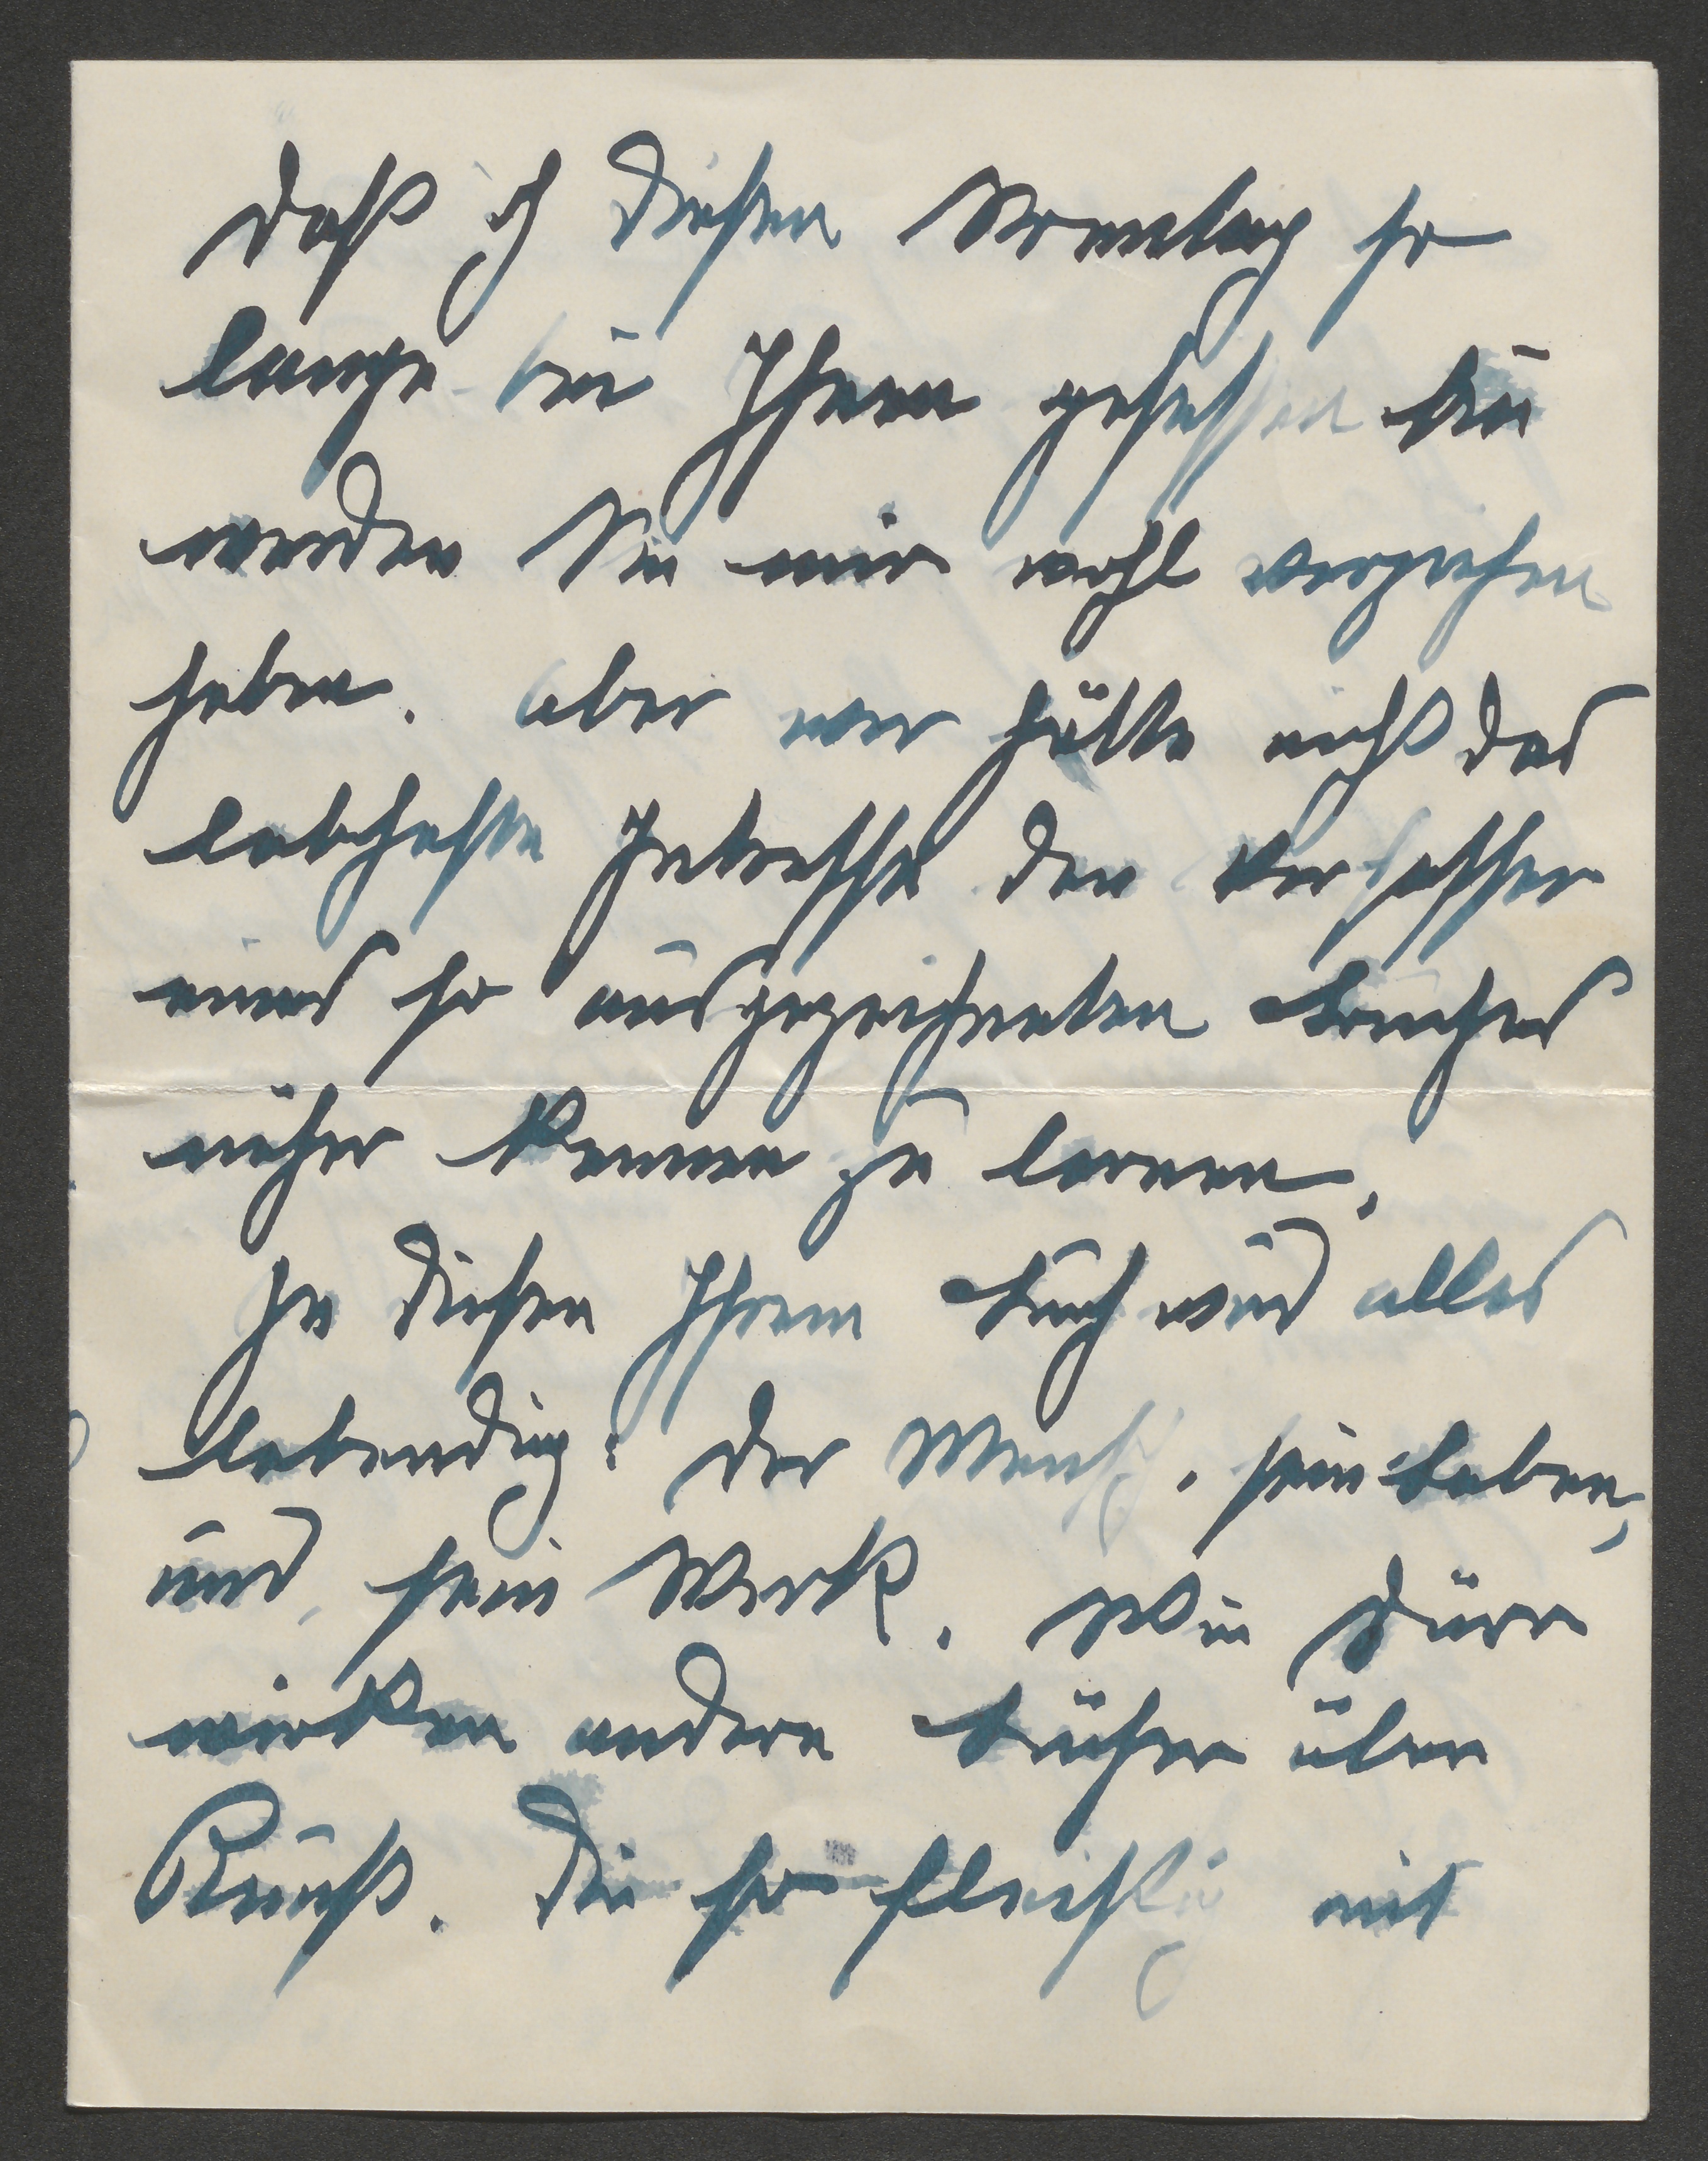 daß ich diesen Sonntag so
lange bei Ihnen gesessen bin
werden Sie mir wohl verziehen
haben. Aber wer hätte nicht das
lebhafte Interesse den Verfasser
eines so ausgezeichneten Buches
näher kennen zu lernen.
In diesem Ihrem Buch wird alles
lebendig: der Mensch, sein Leben,
und sein Werk. Wie dürr
wirken andere Bücher über
die so fleißig mit